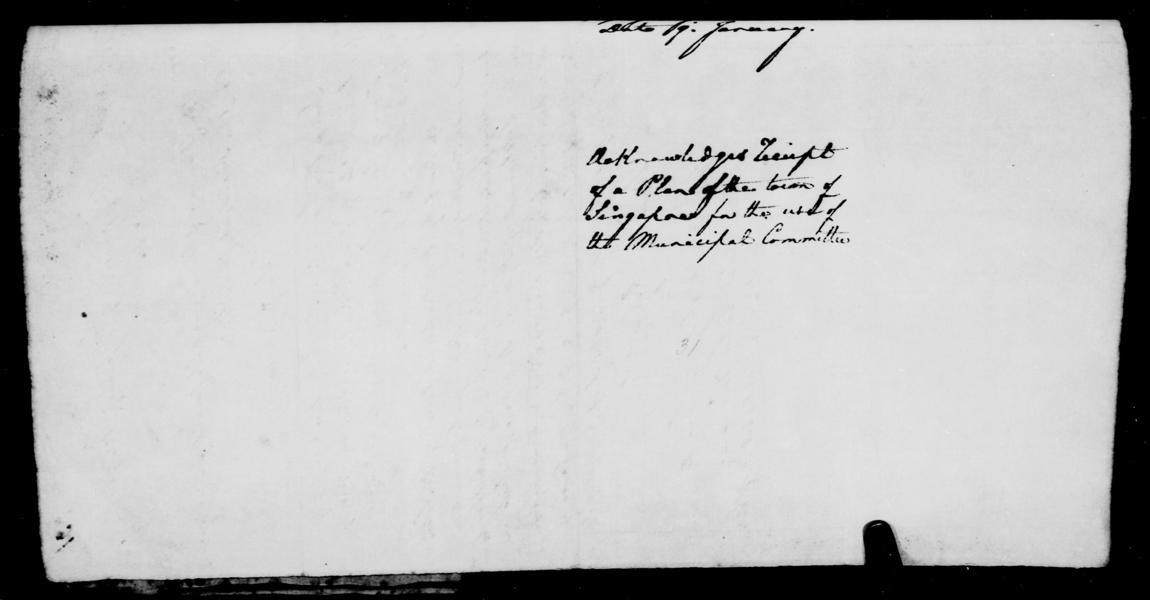 Date 19. January.
Acknowledges Receipt
of a Plan of the town of
Singapore for the use of
the Municipal Committee
31